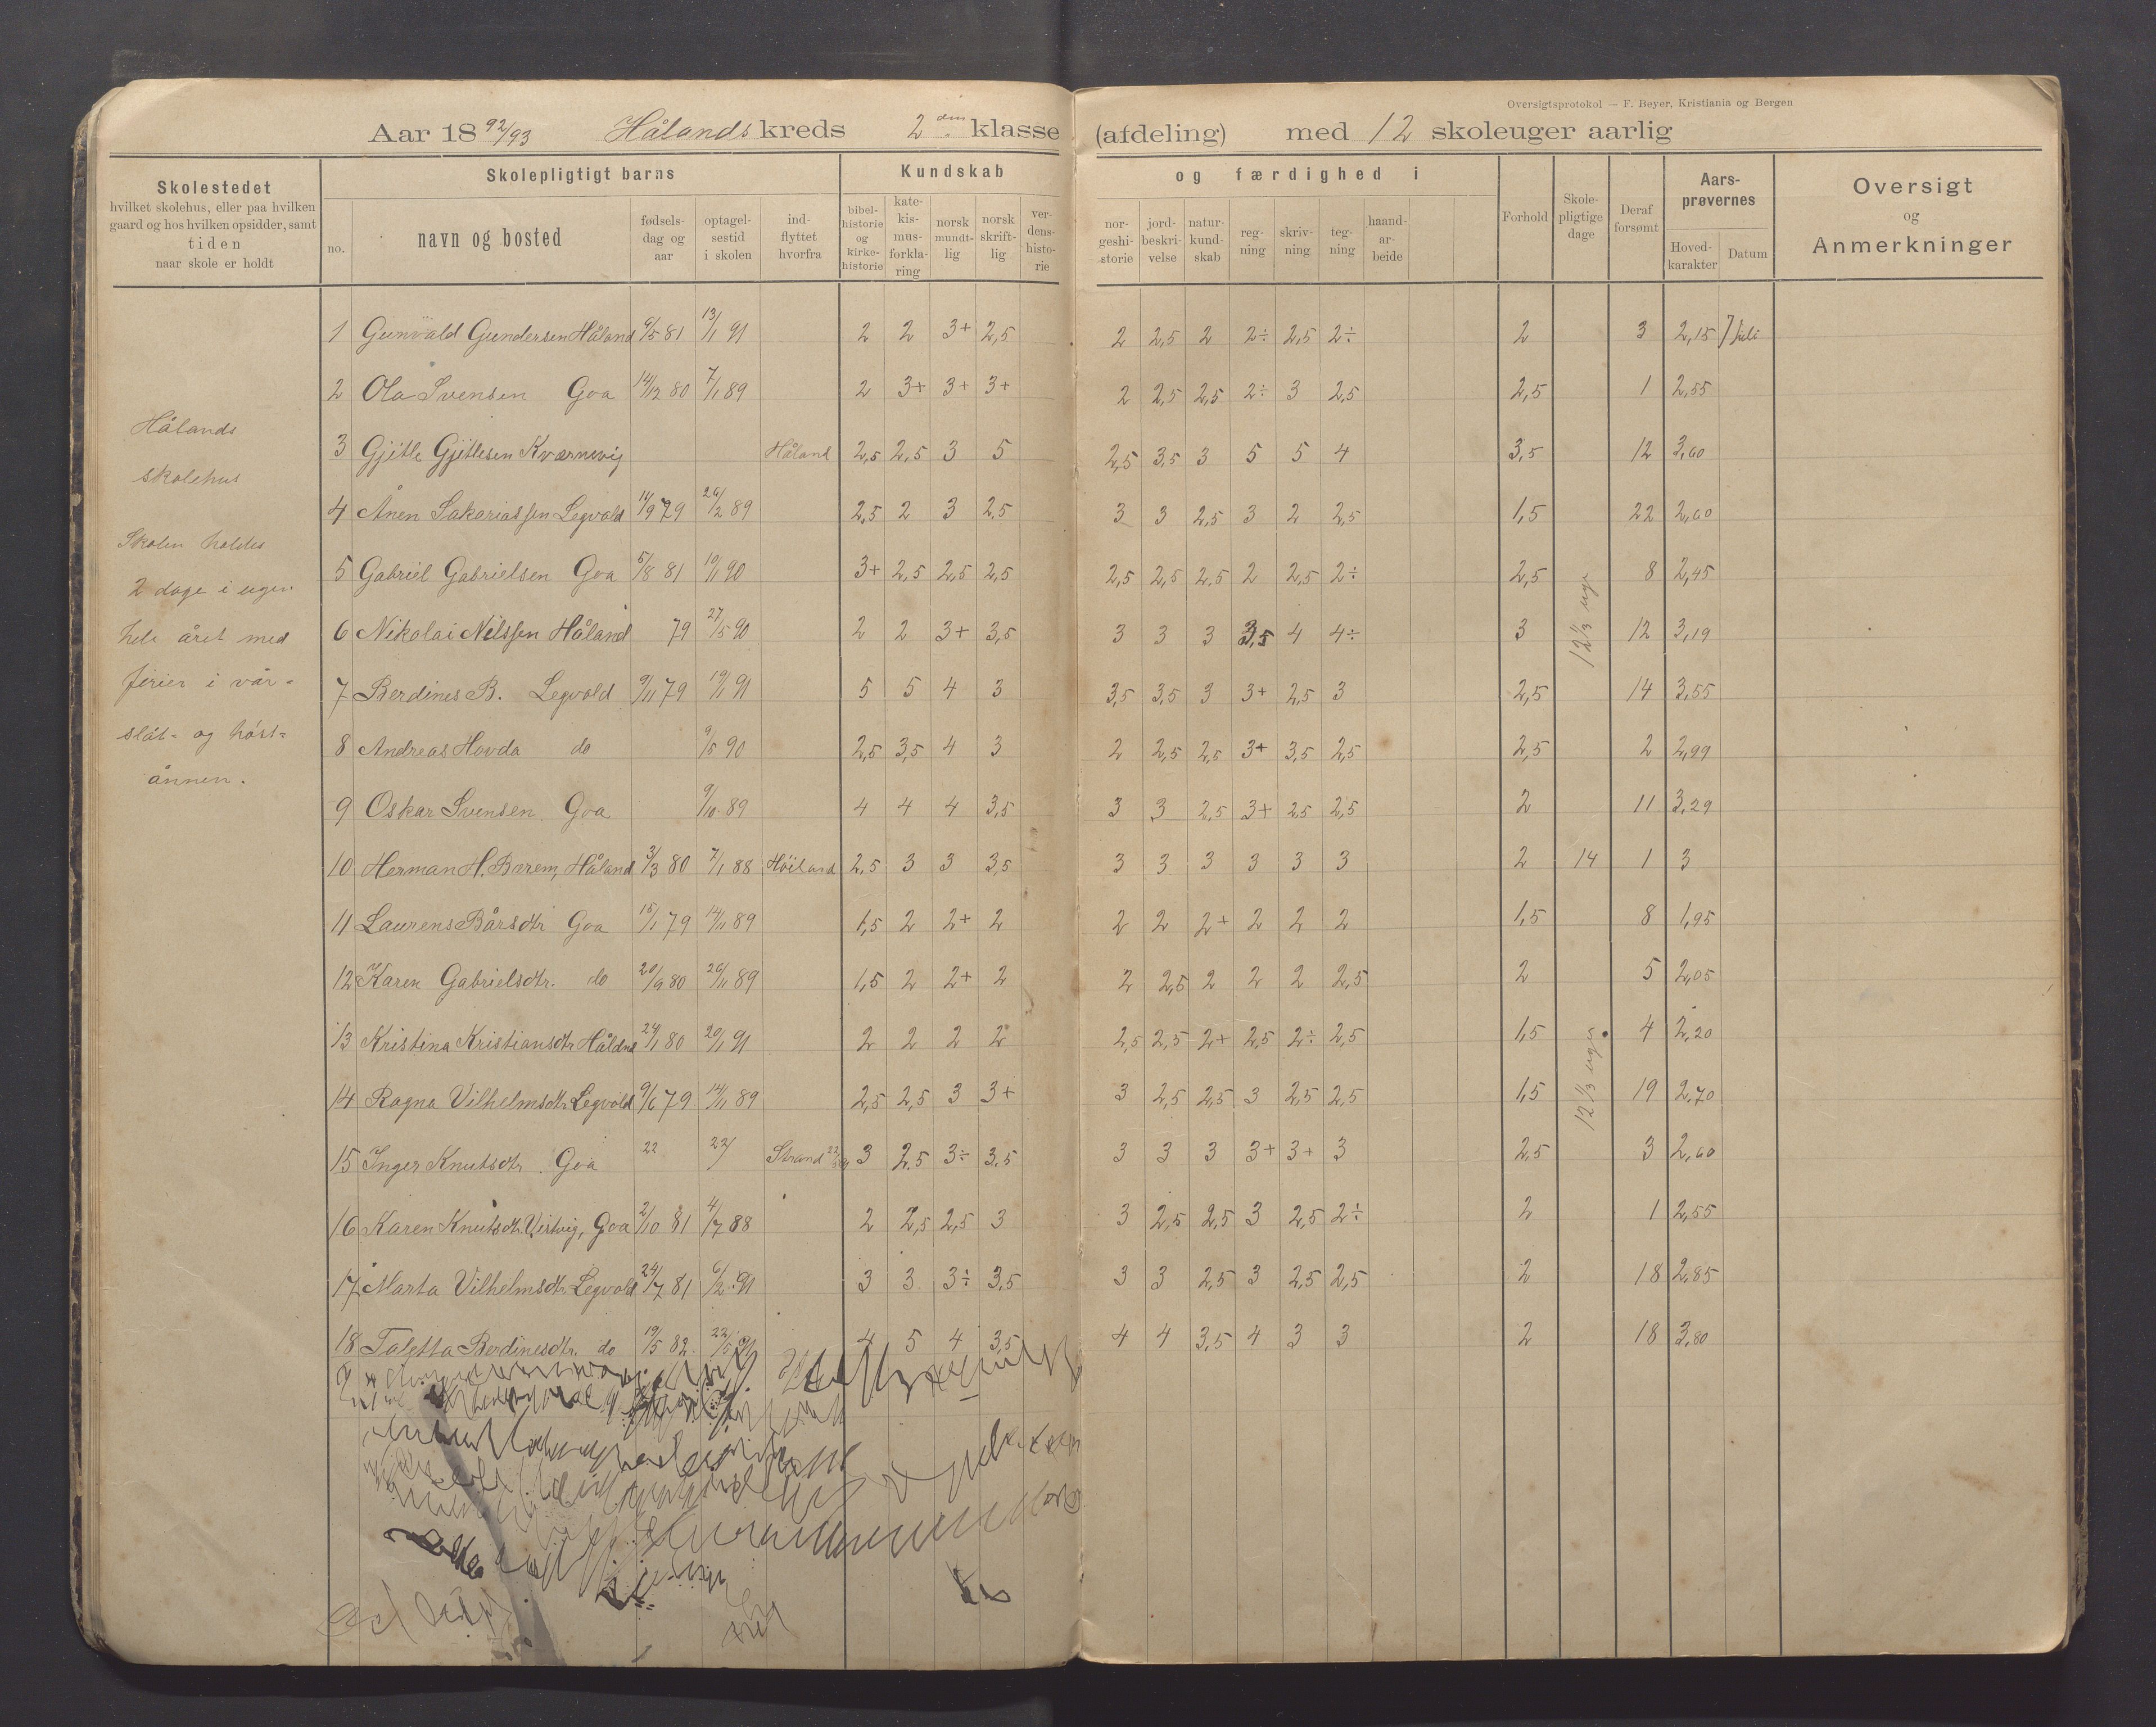 Oversigtsprotokol — F. Beyer, Kristiania og Bergen
Aar 1892/93 Hålands kreds 2den klasse (afdeling) med 12 skoleuger aarlig
Skolestedet
hvilket skolehus, eller paa hvilken
gaard og hos hvilken opsidder, samt
tiden
naar skole er holdt
Skolepligtigt barns
no.
navn og bosted
fødsels-
dag og
aar
optagel-
sestid
i skolen
ind-
flyttet
hvorfra
Kundskab og færdighed i
bibel-
historie
og
kirke-
historie
kate-
kis-
mus-
forkla-
ring
norsk
mundt-
lig
norsk
skrift-
lig
ver-
dens-
histo-
rie
nor-
geshi-
storie
jord-
beskri-
velse
natur-
kund-
skab
reg-
ning
skriv-
ning
teg-
ning
haand-
ar-
beide
Forhold
Skole-
pligtige
dage
Deraf
forsømt
Aars-
prøvernes
Hoved-
karakter
Datum
Oversigt
og
Anmerkninger
Hålands
skolehus
Skolen holdes
2 dage i ugen
hele året med
ferier i vår-
slåt- og høst-
ånnen.
1 Gunvald Gundersen Håland 6/5 81 13/1 91 2 2 3+ 2,5 2 2,5 2 2÷ 2,5 2÷ 2 3 2,15 7 juli
2 Ola Svensen Goa 14/12 80 7/1 89 2 3+ 3+ 3+ 2 2,5 2,5 2÷ 3 2,5 2,5 1 2,55
3 Gjitle Gjitlesen Kværnevig Håland 2,5 2,5 3 5 2,5 3,5 3 5 5 4 3,5 12 3,60
4 Ånen Sakariassen Legvold 14/9 79 26/2 89 2,5 2 3 2,5 3 3 2,5 3 2 2,5 1,5 22 2,60
5 Gabriel Gabrielsen Goa 5/8 81 10/11 90 3+ 2,5 2,5 2,5 2,5 2,5 2,5 2 2,5 2÷ 2,5 8 2,45
6 Nikolai Nilssen Håland 79 27/5 90 2 2 3+ 3,5 3 3 3 3,5 4 4÷ 3 12⅓ uge 12 3,19
7 Berdines B. Legvold 9/11 79 19/1 91 5 5 4 3 3,5 3,5 3 3+ 2,5 3 2,5 14 3,55
8 Andreas Hovda do 9/5 90 2,5 3,5 4 3 2 2,5 2,5 3+ 3,5 2,5 2,5 2 2,99
9 Oskar Svensen Goa 9/10 89 4 4 4 3,5 3 3 2,5 3+ 2,5 2,5 2 11 3,29
10 Herman H. Bærem, Håland 3/3 80 7/1 88 Höiland 2,5 3 3 3,5 3 3 3 3 3 3 2 14 1 3
11 Laurens Bårsdtr Goa 15/1 79 14/11 89 1,5 2 2+ 2 2 2 2+ 2 2 2 1,5 8 1,95
12 Karen Gabrielsdtr. do 20/9 80 26/11 89 1,5 2 2+ 2 2 2,5 2 2 2 2,5 2 5 2,05
13 Kristina Kristiansdtr Hålnd 24/1 80 20/1 91 2 2 2 2 2,5 2,5 2+ 2,5 2÷ 2,5 1,5 12⅓ uge 4 2,20
14 Ragna Vilhelmsdtr Legvold 9/6 79 14/11 89 2,5 2,5 3 3+ 3 2,5 2,5 3 2,5 2,5 1,5 19 2,70
15 Inger Knutsdtr. Goa 22 22/ Strand 3 2,5 3÷ 3,5 3 3 3 3+ 3+ 3 2,5 3 2,60
16 Karen Knutsdtr. Vistvig, Goa 2/10 81 4/7 88 2 2,5 2,5 3 3 2,5 2,5 3 2,5 2÷ 2 1 2,55
17 Marta Vilhelmsdtr. Legvold 24/7 81 6/2 91 3 3 3÷ 3,5 3 3 2,5 3 2,5 2,5 2 18 2,85
18 Taletta Berdinesdtr. do 19/5 82 22/5 91 4 5 4 3,5 4 4 3,5 4 3 3 2 18 3,80